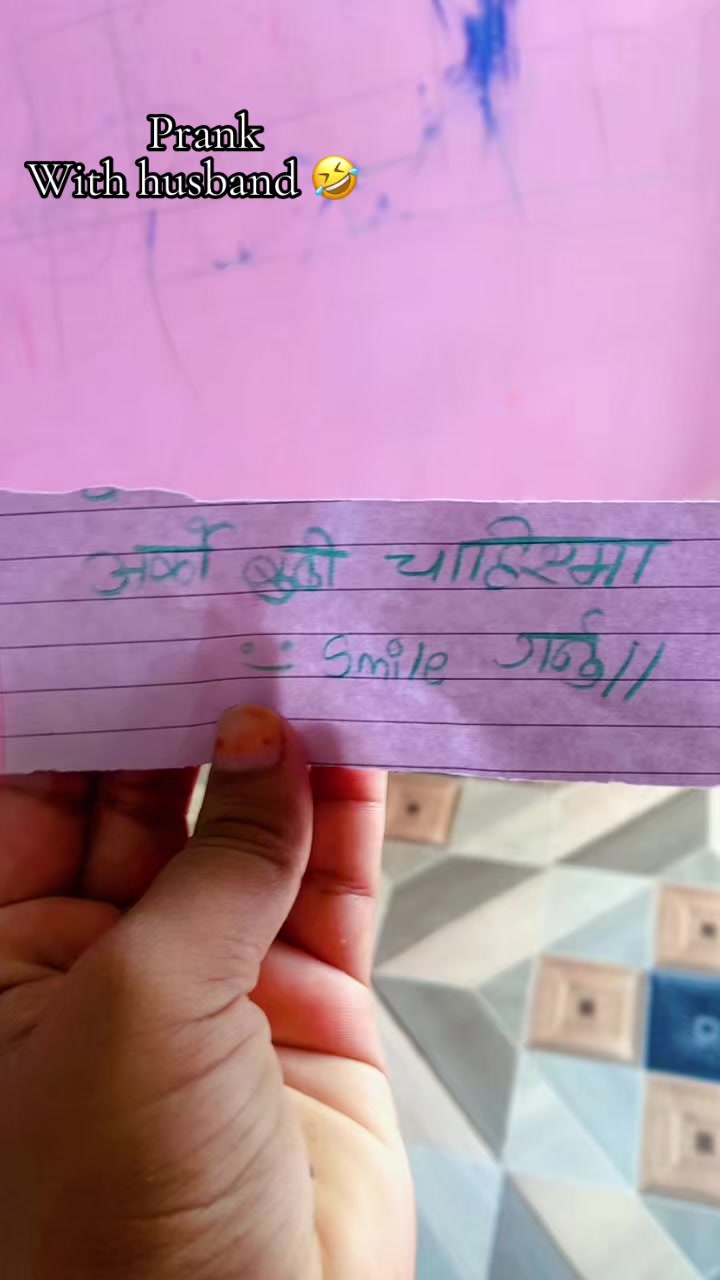 Prank
With husband 🤣
अर्को बुढी चाहिएमा
:-) Smile गर्नु//